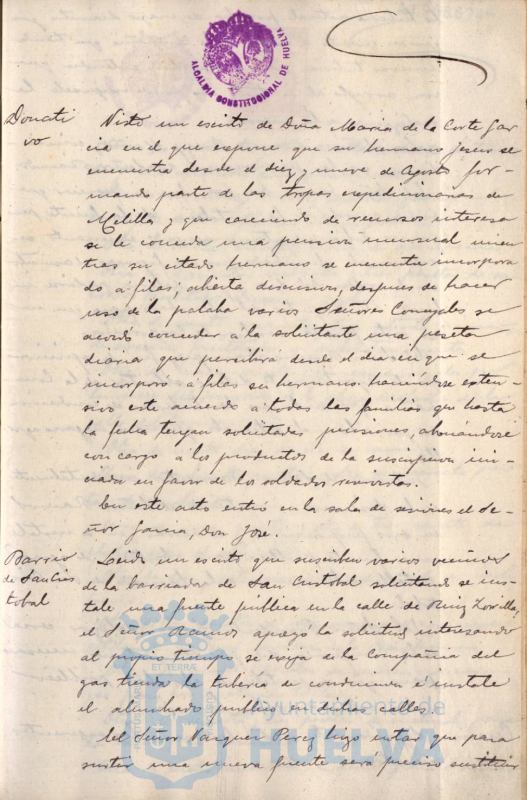 ALCALDIA CONSTITUCIONAL DE HUELVA
Donati
vo
Visto un escrito de Doña Maria de la Corte Gar-
cia en el que expone que su hermano Jesus se
encuentra desde el diez y nueve de Agosto for-
mando parte de las tropas expedicionarias de
Melilla y que careciendo de recursos interesa
se le conceda una pension mensual mien
tras su citado hermano se encuentre incorpora
do á filas; abierta discusion, despues de hacer
uso de la palabra varios Señores Concejales se
acordó conceder á la solicitante una peseta
diaria que percibirá desde el dia en que se
incorporó á filas su hermano haciéndose exten-
sivo este acuerdo a todas las familias que hasta
la fecha tengan solicitadas pensiones, abonándose
con cargo á los productos de la suscripcion ini-
ciada en favor de los soldados reservistas.
En este acto entró en la sala de sesiones el Se-
ñor Garcia, Don José.
Barrio
de San Cris
tobal
Leido un escrito que suscriben varios vecinos
de la barriada de San Cristobal solicitando se ins-
tale una fuente pública en la calle de Ruiz Zorrilla,
el Señor Ramos apoyó la solicitud interesando
al propio tiempo se exija de la Compañia del
gas tienda la tuberia de conduccion é instale
el alumbrado publico en dichas calles.
El Señor Vazquez Perez hizo notar que para
surtir una nueva fuente será preciso sustituir
Ayuntamiento de
HUELVA